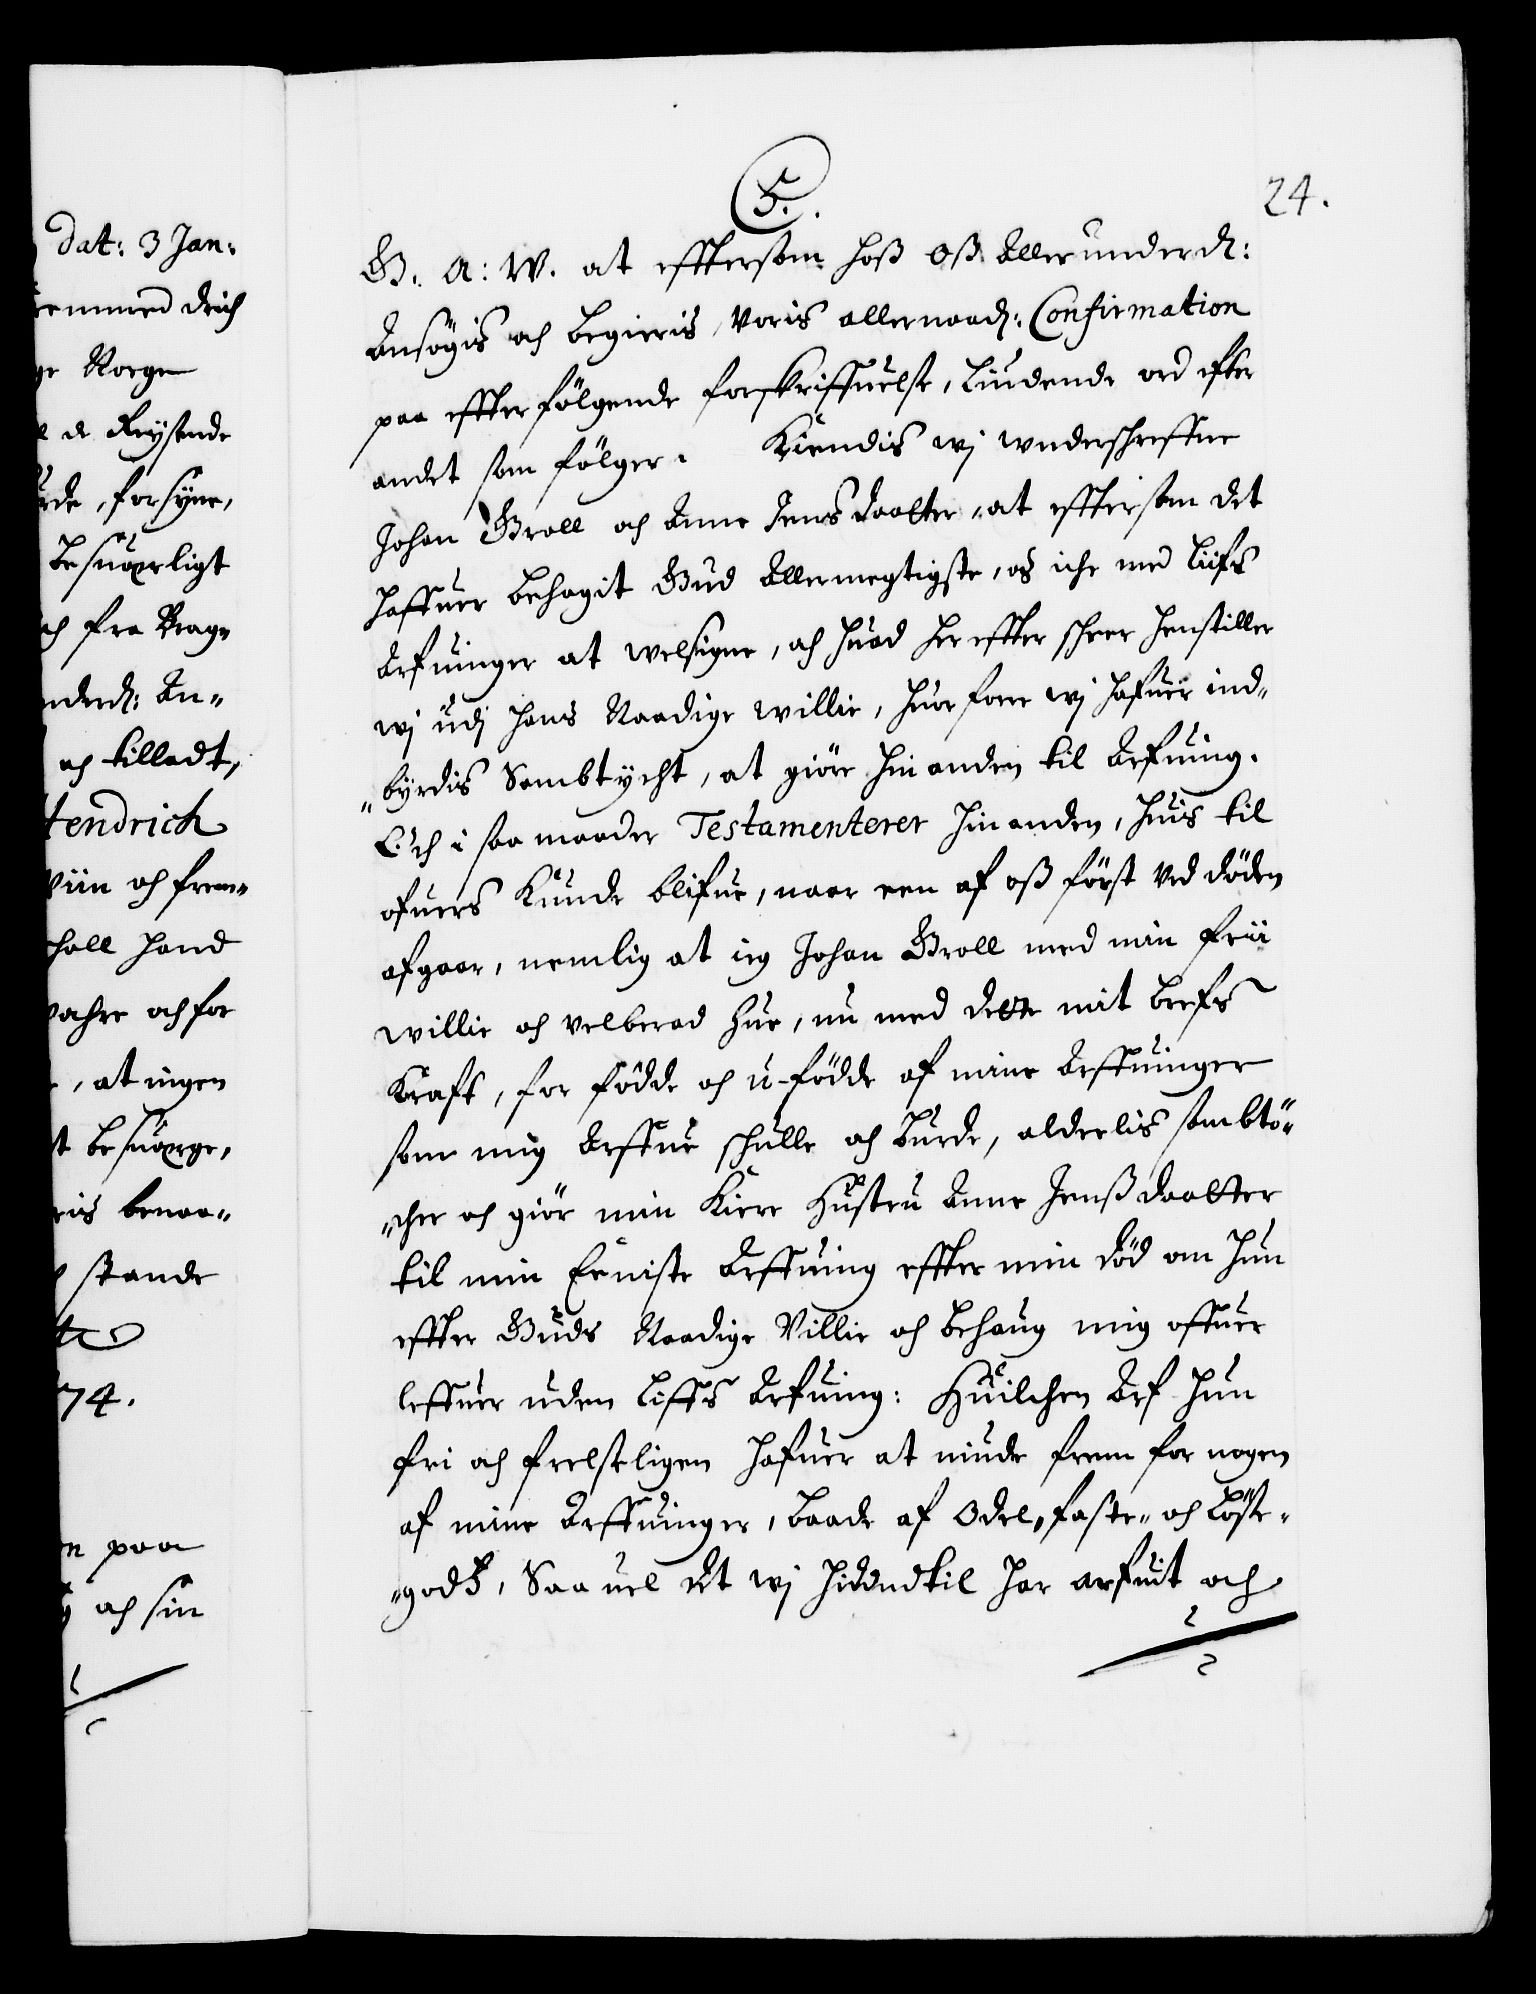 dat: 3 Jan:
drich
ge Norge
de Reysende
forsyne,
besuærligt
och fra Brag„
nderd: An„
och tilladt,
Hendrich
Viin och frem„
schall hand
och for
, at ingen
besuærge,
benaa„
stande
74.
paa
och sin
5.
24.
G. A: W. at effterson hoß oß Allerunderd:
Ansögis och begieris, voris allernaad: Confirmation
paa effterfölgende forskriffuelse, Liudende ord efter
andet som fölger. Kiendis wj wnderschreffne
Johan Groll och Anne Jensdaatter, at effterson det
haffuer behagit Gud Allermegtigste, os iche med Liifs
Arfuinger at welsigne, och huad her effter scheer henstiller
wj udj hans Naadige willie, huorfore wj hafuer ind„
„byrdis Sambtycht, at giöre hin anden til Arfuing.
Och i saa maader Testamenterer hin anden, huis til
ofuers Kunde blifue, naar een af oß först ved döden
afgaar, nemlig at ieg Johan Groll med min frii
willie och velberad hue, nu med dette mit brefs
Kraft, for födde och u-födde af mine Arffuinger
som mig Arffue schulle och burde, alderlis sambtö„
„cher och giör min Kiere Hustru Anne Jenßdaatter
til min Eeniste Arffuing effter min död om hun
effter Guds Naadige Villie och behaug mig offuer
leffuer uden Liffs Arfuing: Huilchen Arf hun
fri och frelseligen hafuer at niude frem for nogen
af mine Arffuinger, baade af Odel, faste„ och Löse„
„godß, Saauel det wj hidendtil har arfuit och